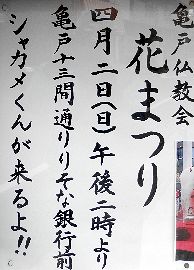 亀戸仏教会
花まつり
四月二日(日)午後二時より
亀戸十三間通りりそな銀行前
シャカメくんが来るよ!!